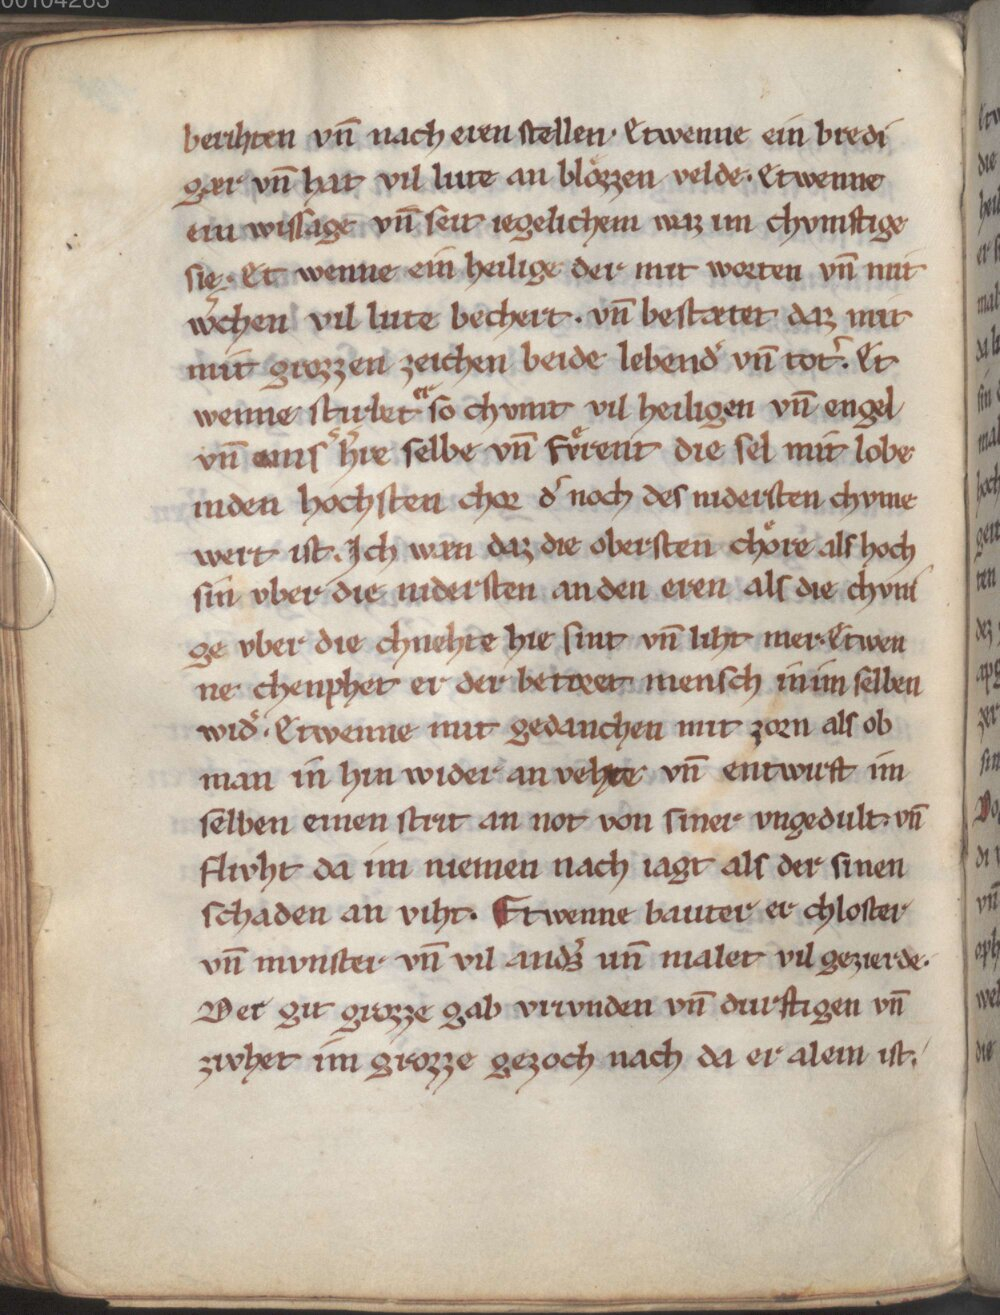 00104263
berihten vn̄ nach eren stellen· Etwenne ein bredi
gær vn̄ hat vil lute an blözzen velde· Etwenne
ein wissage vn̄ seit iegelichem waz im chvmftige
sie· Et wenne ein heilige der mit worten vn̄ mit
chen vil lute bechert· vn̄ bestætet daz mit
mit grozzen zeichen beide lebend᾽ vn̄ tot᾽· Et
wenne stirbet er so chvmt vil heiligen vn̄ engel
vn̄ h᾽re selbe vn̄ fv̊rent die sel mit lobe
inden hochsten chor d᾽ noch des nidersten chvme
wert ist· Ich wæn daz die obersten chöre als hoch
sin vber die nidersten an den eren als die chvni
ge vber die chnehte hie sint vn̄ liht mer· Etwen
ne chenphet er der betoret mensch in im selben
wid᾽· Etwenne mit gedanchen mit zorn als ob
man in hin wider an vehte vn̄ entwirft im
selben einen strit an not von siner vngedult· vn̄
flivht da im niemen nach iagt als der sinen
schaden an viht· Etwenne bauter er chloster
vn̄ mvnster vn̄ vil and᾽s vn̄ malet vil gezierde·
Det git grozze gab vrivnden vn̄ durftigen vn̄
zivhet im grozze gezoch nach da er alein ist·